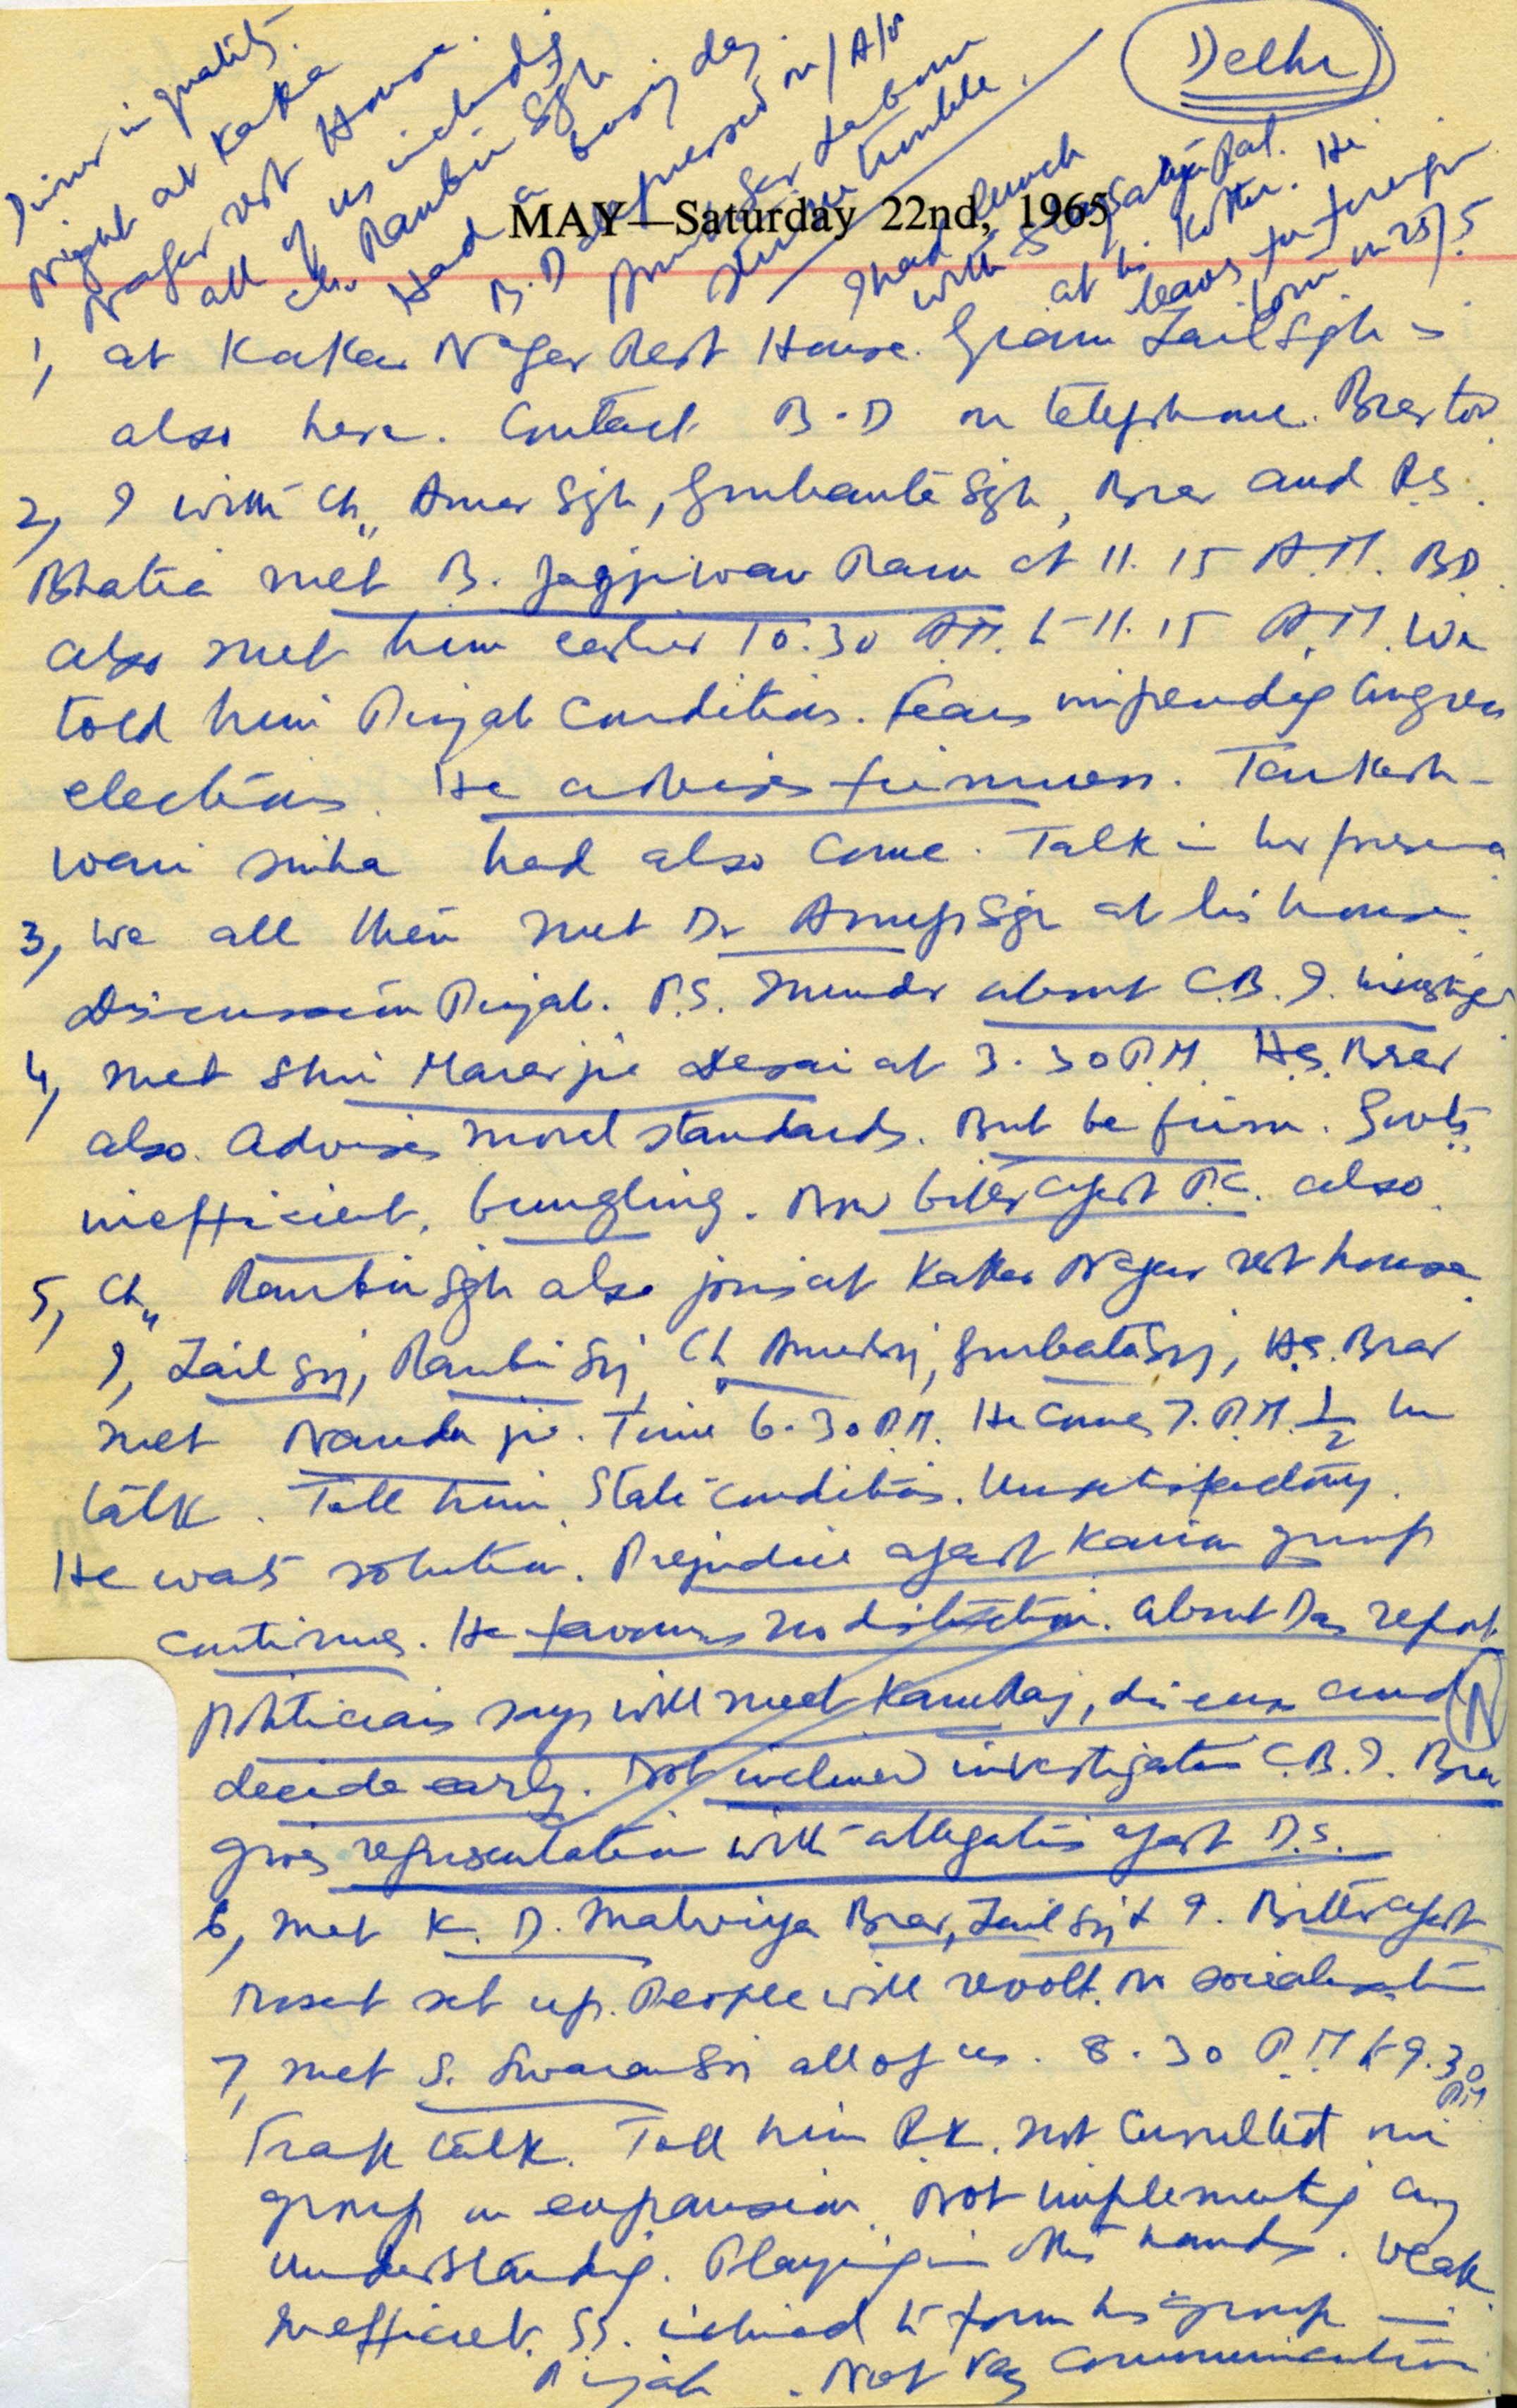 Delhi
Dinner in
night at Kaka
Nagar rest House.
all of us including
Ch. Ranbir Sgh
Had a busy day.
B.D. also
Amritsar Labour
trouble.
I had lunch
with S.
at his Kothi. He
leaves for foreign
on 25/5
MAY—Saturday 22nd, 1965
1, at Kaka Nagar Rest House. Giani Zail Sgh is
also here. Contact B.D on telephone. Brar too
2, I with Ch,, Amar Sgh, Gurbanta Sgh, Brar and P.S.
Bhatia met B. Jagjiwan Ram at 11.15 A.M. BD
also met him earlier 10.30 A.M. to 11.15 A.M. We
told him Punjab Conditions. Fears impending Congress
elections. He advises firmness. Tarkesh-
wari Sinha had also come. Talk in her presence
3, We all then met Dr Anup Sgh at his house.
Discussion Punjab. about C.B.I.
4, met Shri Morarjie Desai at 3.30 P.M. H.S. Brar
also. Advises moral standards. But be firm. Govts,,
inefficient, bungling. Now bitter agast P.C. also
5, Ch,, Ranbir Sgh also joins at Kaka Nagar rest house.
I, Zail Sgj, Ranbir Sgj, Ch Amar Sgj, Gurbanta Sgj, H.S. Brar
met Nanda jie. Time 6.30 P.M. He comes 7. P.M. 1/2 hr
talk. Tell him State conditions. Unsatisfactory.
He wants solution. Prejudice agast Kairon group
continues. He favours no distinction. About Das report
Politicians says will meet Kamraj, discuss and (N)
decide early. Not inclined investigation C.B.I. Brar
gives representation with allegations agast D.S.
6, met K. D. Malviya Brar, Zail Sgj & I. Bitter agast
set up. People will revolt. No
7, met S. Swaran Sgj all of us. 8.30 P.M to 9.30 P.M
Frank talk. Tell him R.K. not consulted our
group on expansion. Not implementing any
understanding. Playing in other hands. Weak
Inefficient. SS. inclined to form his group in
Punjab. Not very communicative